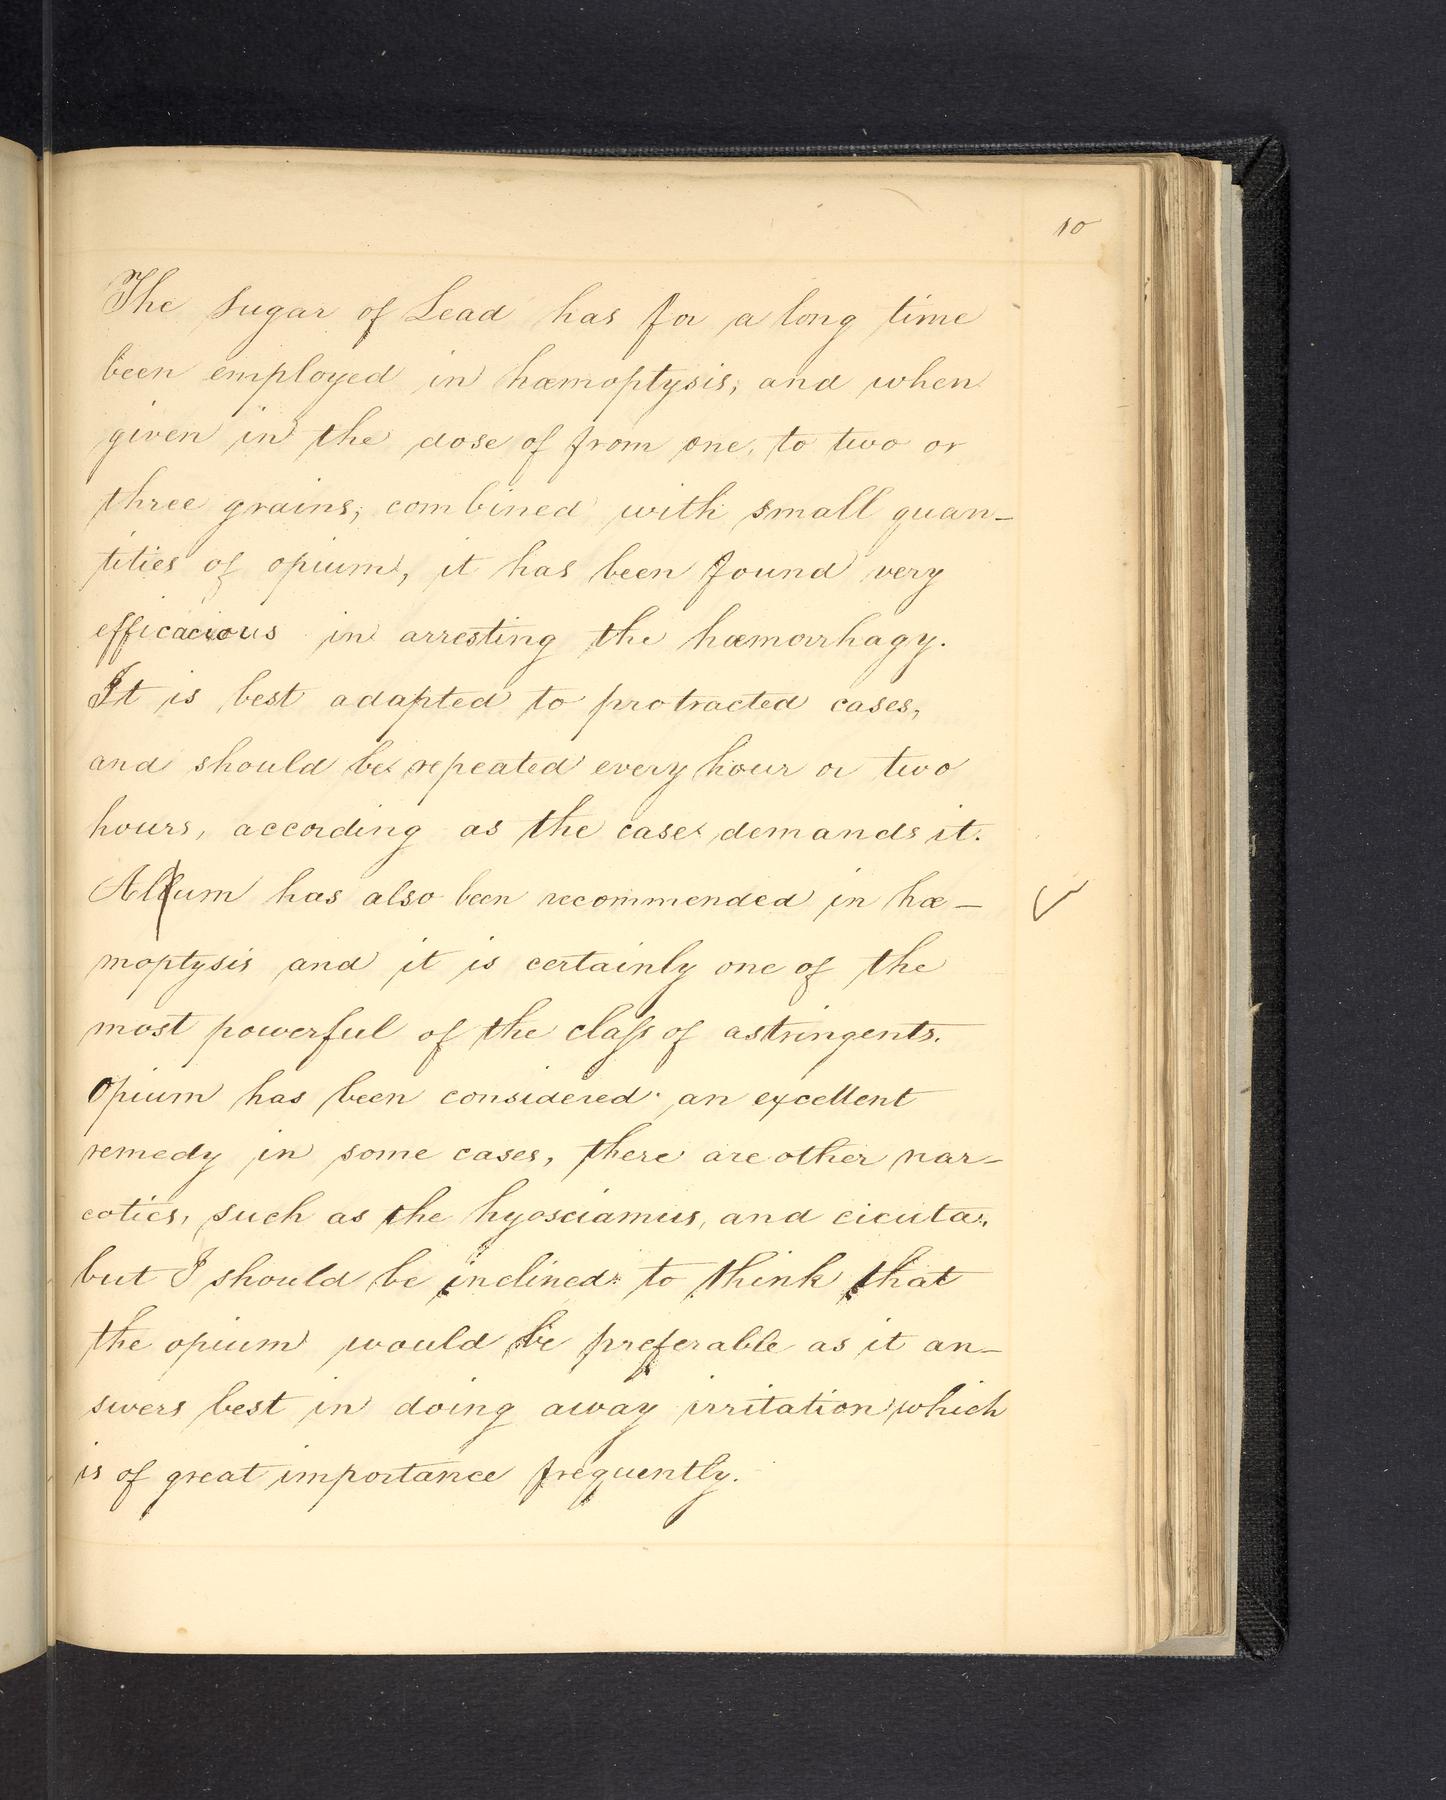 10
The Sugar of Lead has for a long time
been employed in hæmoptysis, and when
given in the dose of from one, to two or
three grains, combined with small quan-
tities of opium, it has been found very
efficacious in arresting the hæmorrhagy.
It is best adapted to protracted cases,
and should be repeated every hour or two
hours, according as the case demands it.
Allum has also been recommended in hæ-
moptysis and it is certainly one of the
most powerful of the class of astringents.
Opium has been considered an excellent
remedy in some cases, there are other nar-
cotics, such as the hyosciamus, and cicuta,
but I should be inclined to think that
the opium would be preferable as it an-
swers best in doing away irritation which
is of great importance frequently.